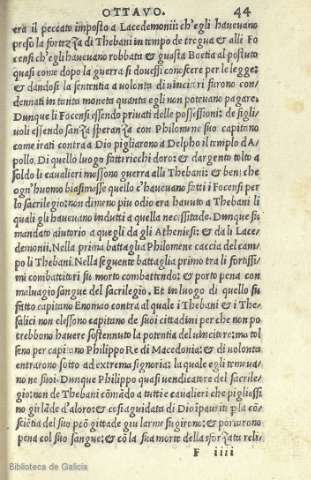 OTTAVO. 44
era il peccato imposto a Lacedemonii: ch'egli haueuano
preso la forteza di Thebani in tempo de tregua & alli Fo
censi ch'egli haueuano robbata & guasta Boetia al postuto
quasi come dapo la guerra si douessi conoscere per le legge:
& dandosi la sententia a uolonta di uincitori furono con-
dennati in tanta moneta quanta egli non potruano pagare.
Dunque li Focensi essendo priuati delle possessioni: de figli-
uoli essendo sanza speranza con Philomune suo capitano
come irati contra a Dio pigliarono a Delpho il templo d'A
pollo. Di quello luogo fatti ricchi doro: & dargento tolto a
soldo li caualieri mossono guerra alli Thebani: & ben che
ogn'huomo biasimasse quello c'haueuano fatti i Focensi per
lo sacrilegio: non dimeno piu odio era hauuto a Thebani li
quali gli haueuano indutti a quella necessitade. Dunque fu
mandato aiutorio a quegli da gli Atheniesi: & da li Lace-
demonii. Nella prima battaglia Philomene caccia del cam-
po li Thebani. Nella seguente battaglia primo tra li fortissi-
mi combattitori fu morto combattendo: & porto pena con
maluagio sangue del sacrilegio. Et in luogo di quello fu
fatto capitano Enomao contra al quale i Thebani & i The-
salici non elessono capitano de suoi cittadini per che non po
trebbono hauere sostennuto la potentia del uincitore: ma tol
seno per capitano Philippo Re di Macedonia: & di uolonta
entrarono sotto ad extrema signoria: la quale egli temeua-
no ne suoi. Dunque Philippo quasi uendicatore del sacrile-
gio: non de Thebani cōmādo a tutti e caualieri che pigliassi
no girlāde d'aloro: & cosi a guidata di Dio ipauriti p la cō-
sciētia del sito peō gittade giu larme fugirono: & portarono
pena col suo sangue: & cō la sua morte della sforzata reli-
F iiii
Biblioteca de Galicia